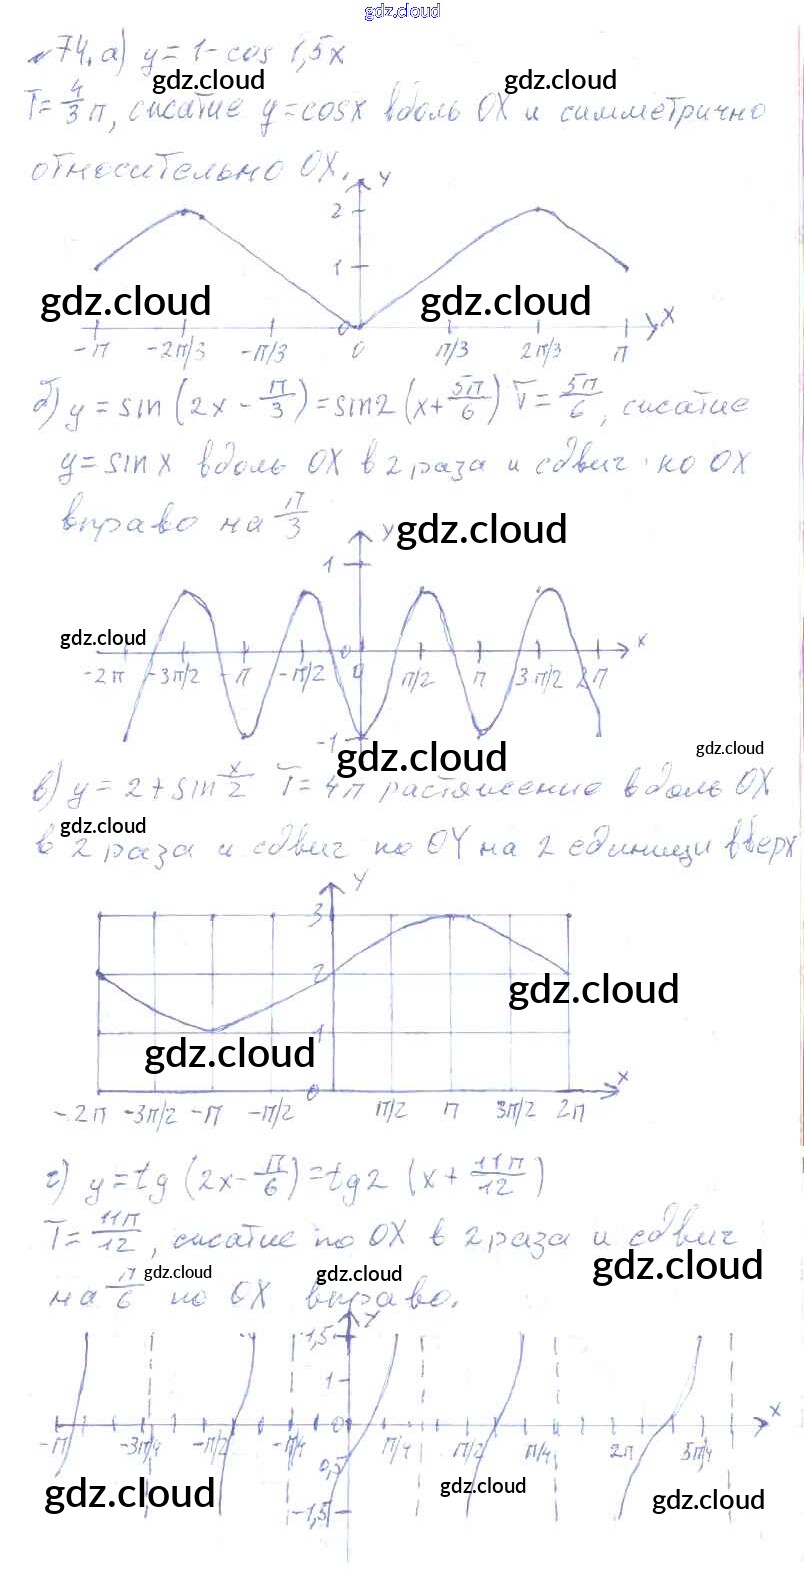 gdz.cloud
№74. а) y = 1 - cos 1,5x
gdz.cloud gdz.cloud
T = 4/3 π, сжатие y = cosx вдоль OX и симметрично
относительно OX.
y
2
1
gdz.cloud gdz.cloud
0 x
-π -2π/3 -π/3 0 π/3 2π/3 π
б) y = sin (2x - π/3) = sin2 (x + 5π/6) T = 5π/6, сжатие
y = sin x вдоль OX в 2 раза и сдвиг по OX
вправо на π/3
y gdz.cloud
1
gdz.cloud
0 x
-2π -3π/2 -π -π/2 0 π/2 π 3π/2 2π
-1
gdz.cloud gdz.cloud
в) y = 2 + sin x/2 T = 4π растяжение вдоль OX
gdz.cloud
в 2 раза и сдвиг по OY на 2 единицы вверх
y
3
2
gdz.cloud
1
gdz.cloud
0 x
-2π -3π/2 -π -π/2 π/2 π 3π/2 2π
г) y = tg (2x - π/6) = tg2 (x + 11π/12)
T = 11π/12, сжатие по OX в 2 раза и сдвиг
gdz.cloud
на π/6 по OX вправо.
gdz.cloud gdz.cloud
y
1,5
1
0 x
-π -3π/4 -π/2 -π/4 π/4 π/2 π/4 2π 5π/4
0,5
gdz.cloud gdz.cloud gdz.cloud
-1,5